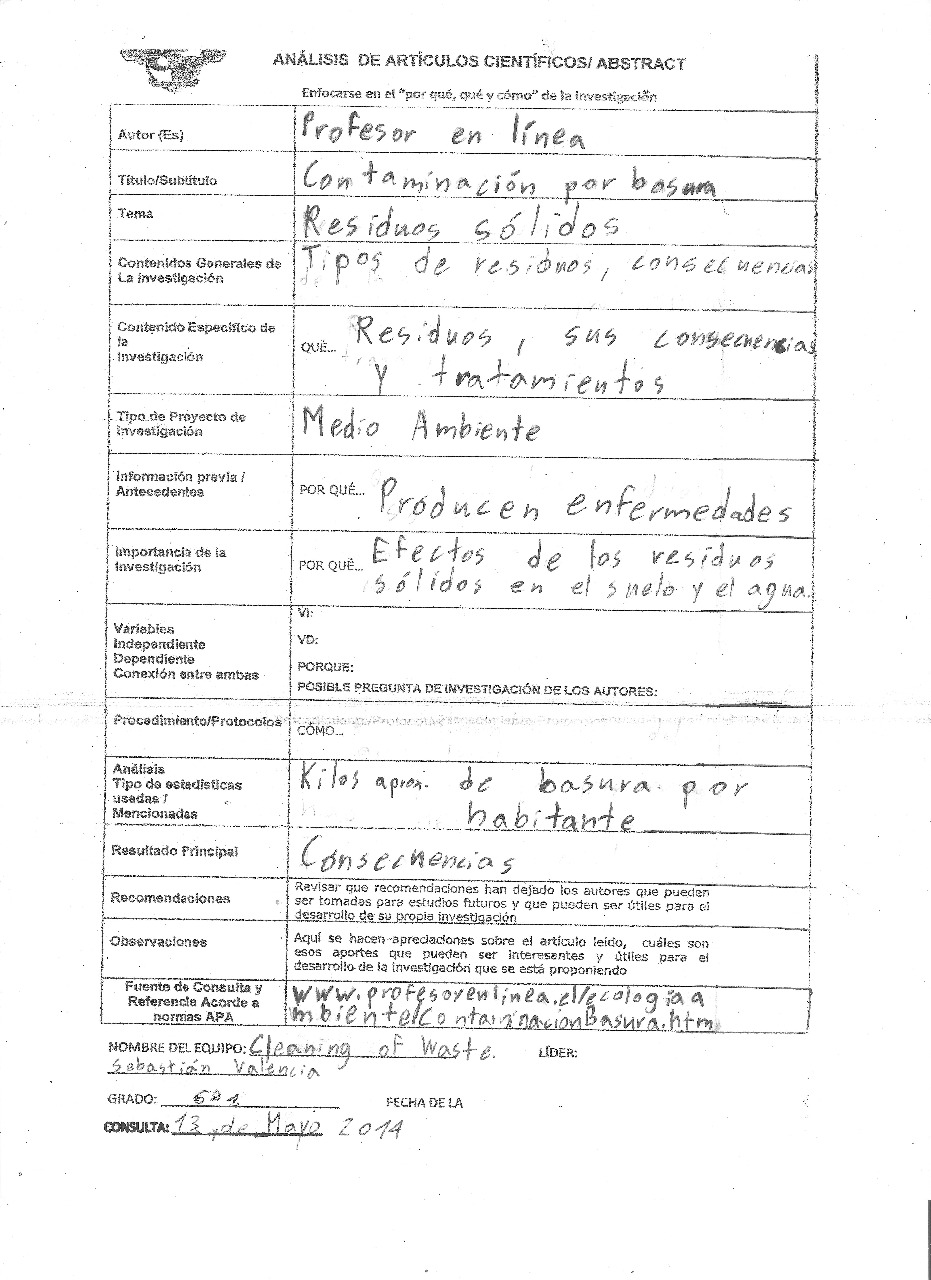 ANÁLISIS DE ARTÍCULOS CIENTÍFICOS/ ABSTRACT
Enfocarse en el "por qué, qué y cómo" de la investigación
Autor (Es)
Profesor en línea
Título/Subtítulo
Contaminación por basura
Tema
Residuos sólidos
Contenidos Generales de
La Investigación
Tipos de residuos, consecuencias
Contenido Específico de
la
Investigación
QUÉ... Residuos, sus consecuencias
y tratamientos
Tipo de Proyecto de
Investigación
Medio Ambiente
Información previa /
Antecedentes
POR QUÉ... Producen enfermedades
Importancia de la
Investigación
POR QUÉ... Efectos de los residuos
sólidos en el suelo y el agua.
Variables
Independiente
Dependiente
Conexión entre ambas
VI:
VD:
PORQUE:
POSIBLE PREGUNTA DE INVESTIGACIÓN DE LOS AUTORES:
Procedimiento/Protocolos
CÓMO...
Análisis
Tipo de estadísticas
usadas /
Mencionadas
Kilos aprox. de basura por
habitante
Resultado Principal
Consecuencias
Recomendaciones
Revisar que recomendaciones han dejado los autores que puedan
ser tomadas para estudios futuros y que pueden ser útiles para el
desarrollo de su propia investigación
Observaciones
Aquí se hacen apreciaciones sobre el artículo leído, cuáles son
esos aportes que pueden ser interesantes y útiles para el
desarrollo de la investigación que se está proponiendo
Fuente de Consulta y
Referencia Acorde a
normas APA
www.profesorenlinea.cl/ecologiaa
mbiente/ContaminacionBasura.htm
NOMBRE DEL EQUIPO: Cleaning of Waste. LÍDER:
Sebastián Valencia
GRADO:
FECHA DE LA
CONSULTA: 13 de Mayo 2014